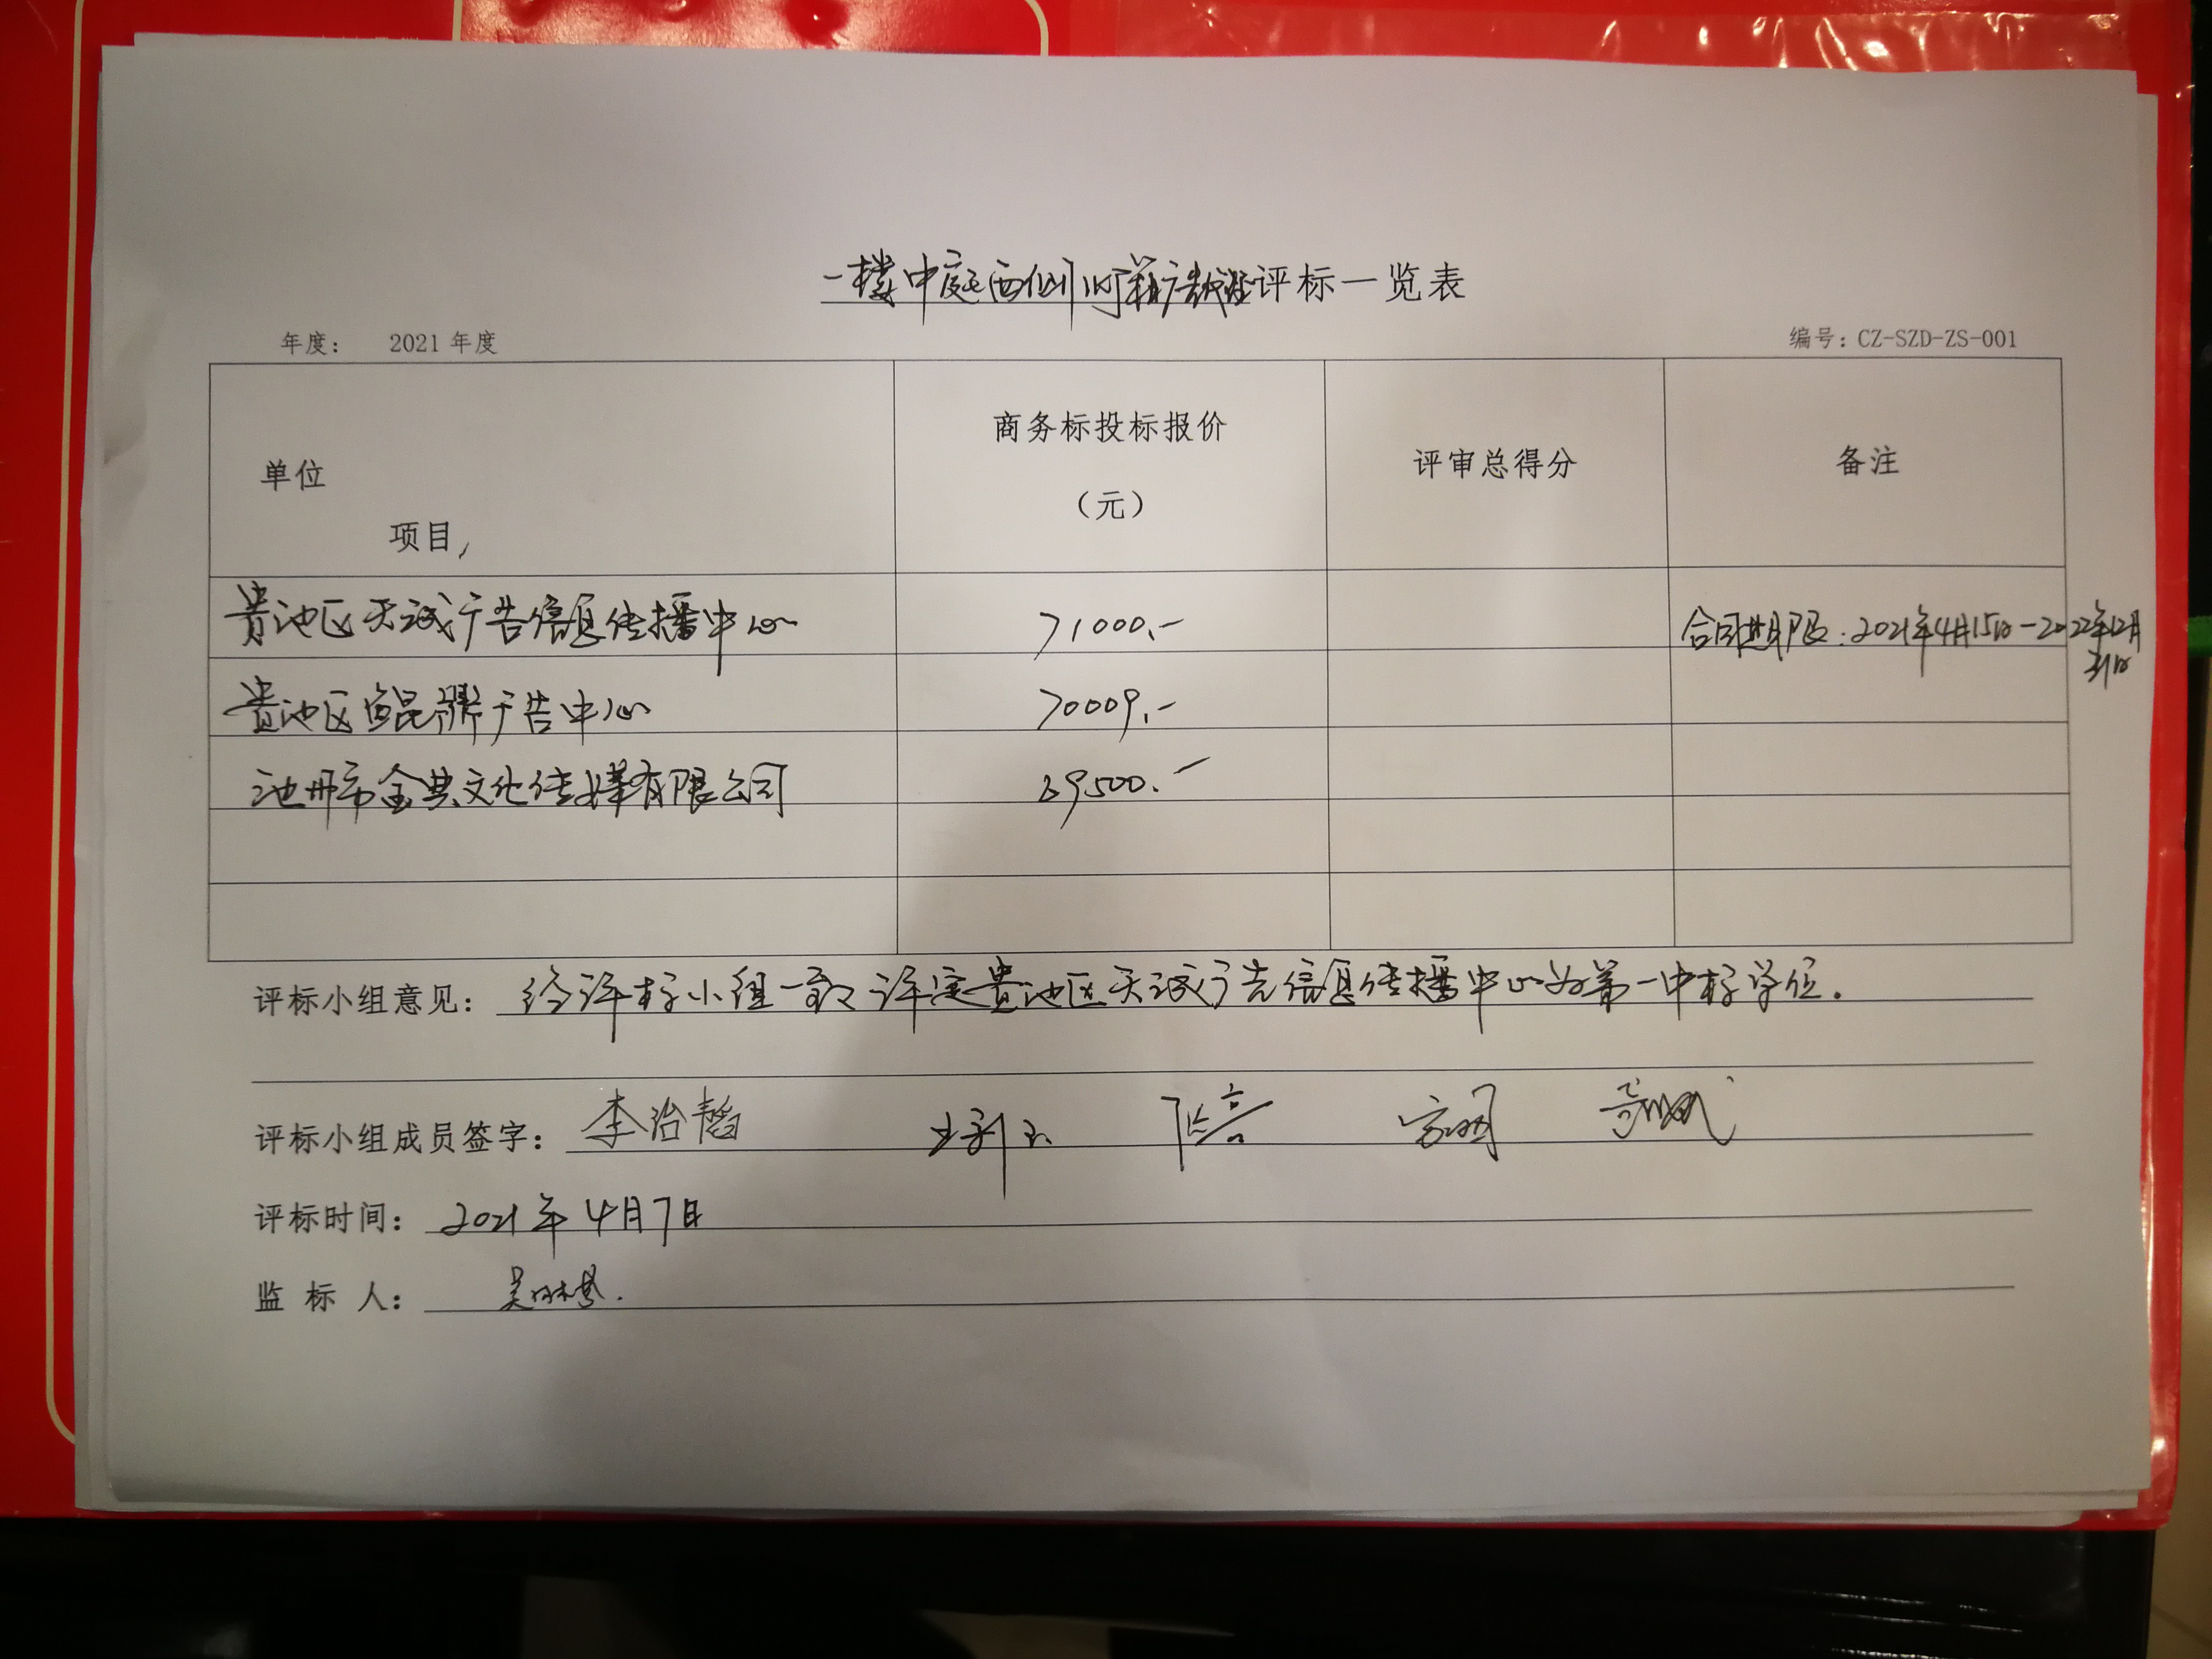 一楼中庭西侧 评标一览表
年度： 2021 年度 编号：CZ-SZD-ZS-001
单位 项目 商务标投标报价（元） 评审总得分 备注
贵池区天诚广告信息传播中心 71000.- 合同期限：2021年4月15日-2022年12月31日
贵池区鲲 广告中心 70009.-
池州市金典文化传媒有限公司 69500.-
评标小组意见：经评标小组一致评定贵池区天诚广告信息传播中心为第一中标单位.
评标小组成员签字：李治韬
评标时间：2021年4月7日
监 标 人：